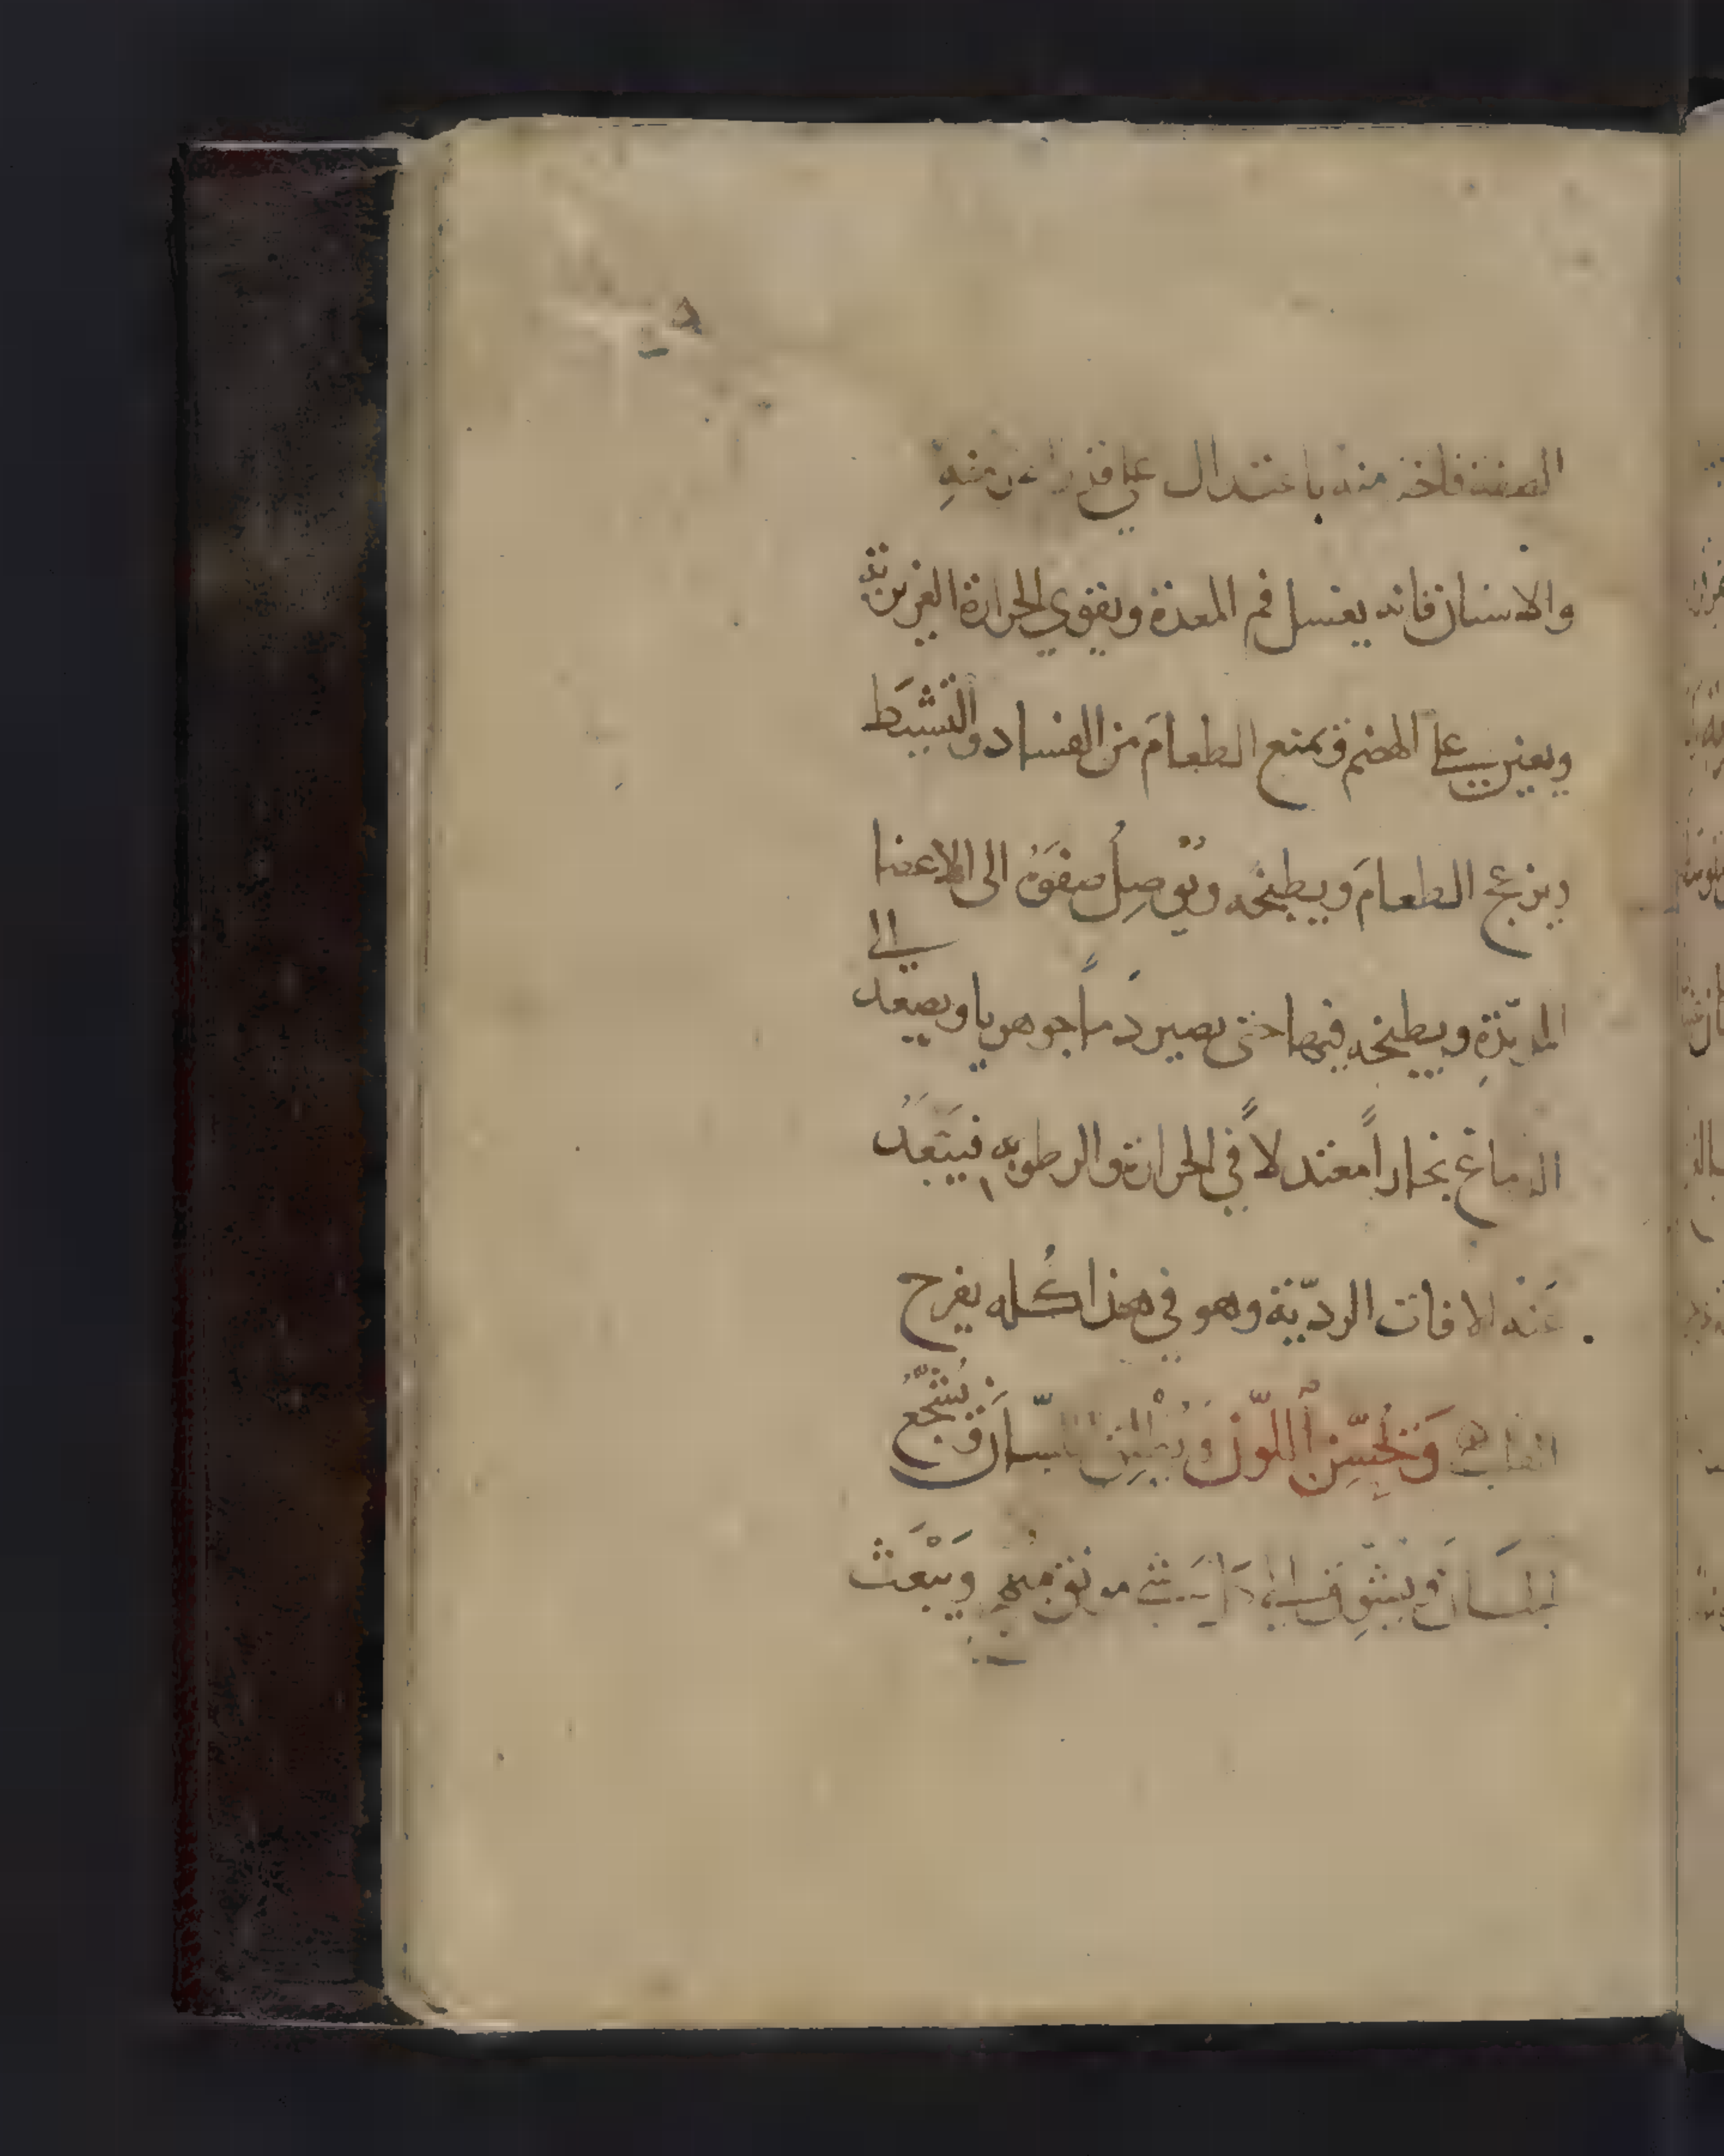 الصفة فاخذ منه باعتدال على قدر السن منه
والاسنان فانه يغسل فم المعدة ويقوي الحرارة الغريزية
ويعين على الهضم ويمنع الطعام من الفساد والتشيط
ويزعج الطعام ويطبخه ويوصل صفوه الى الاعضا
المريّة ويطبخه فيها حتى يصير دماً جوهريا ويصعد الى
الدماغ بخاراً معتدلاً في الحرارة والرطوبة فيبعد
عنه الافات الرديّة وهو في هذا كله يفرح
القلب ويُحسّن اللّون ويُطلق اللّسان ويُشجّع
الجبان وينشّف ويبعث